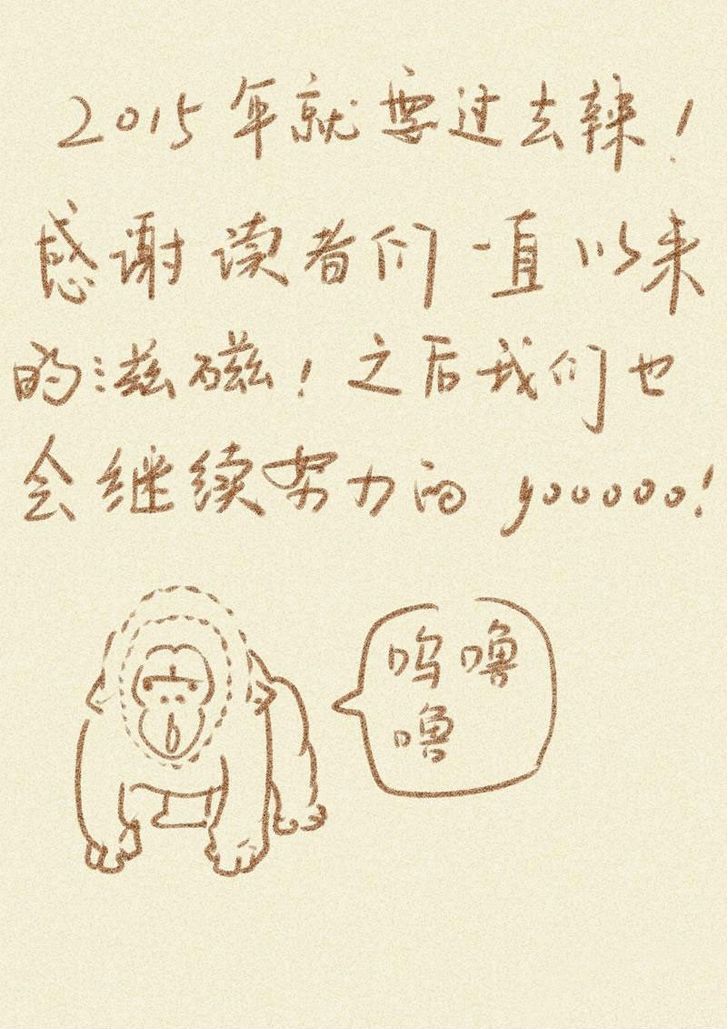 2015年就要过去辣！
感谢读者们一直以来
的滋磁！之后我们也
会继续努力的 yooooo!
呜噜
噜